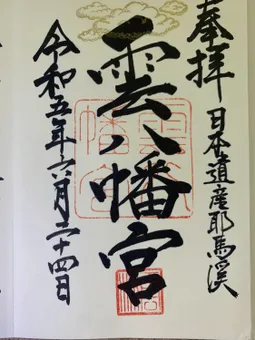 奉拝
日本遺産耶馬溪
雲八幡宮
令和五年六月二十四日